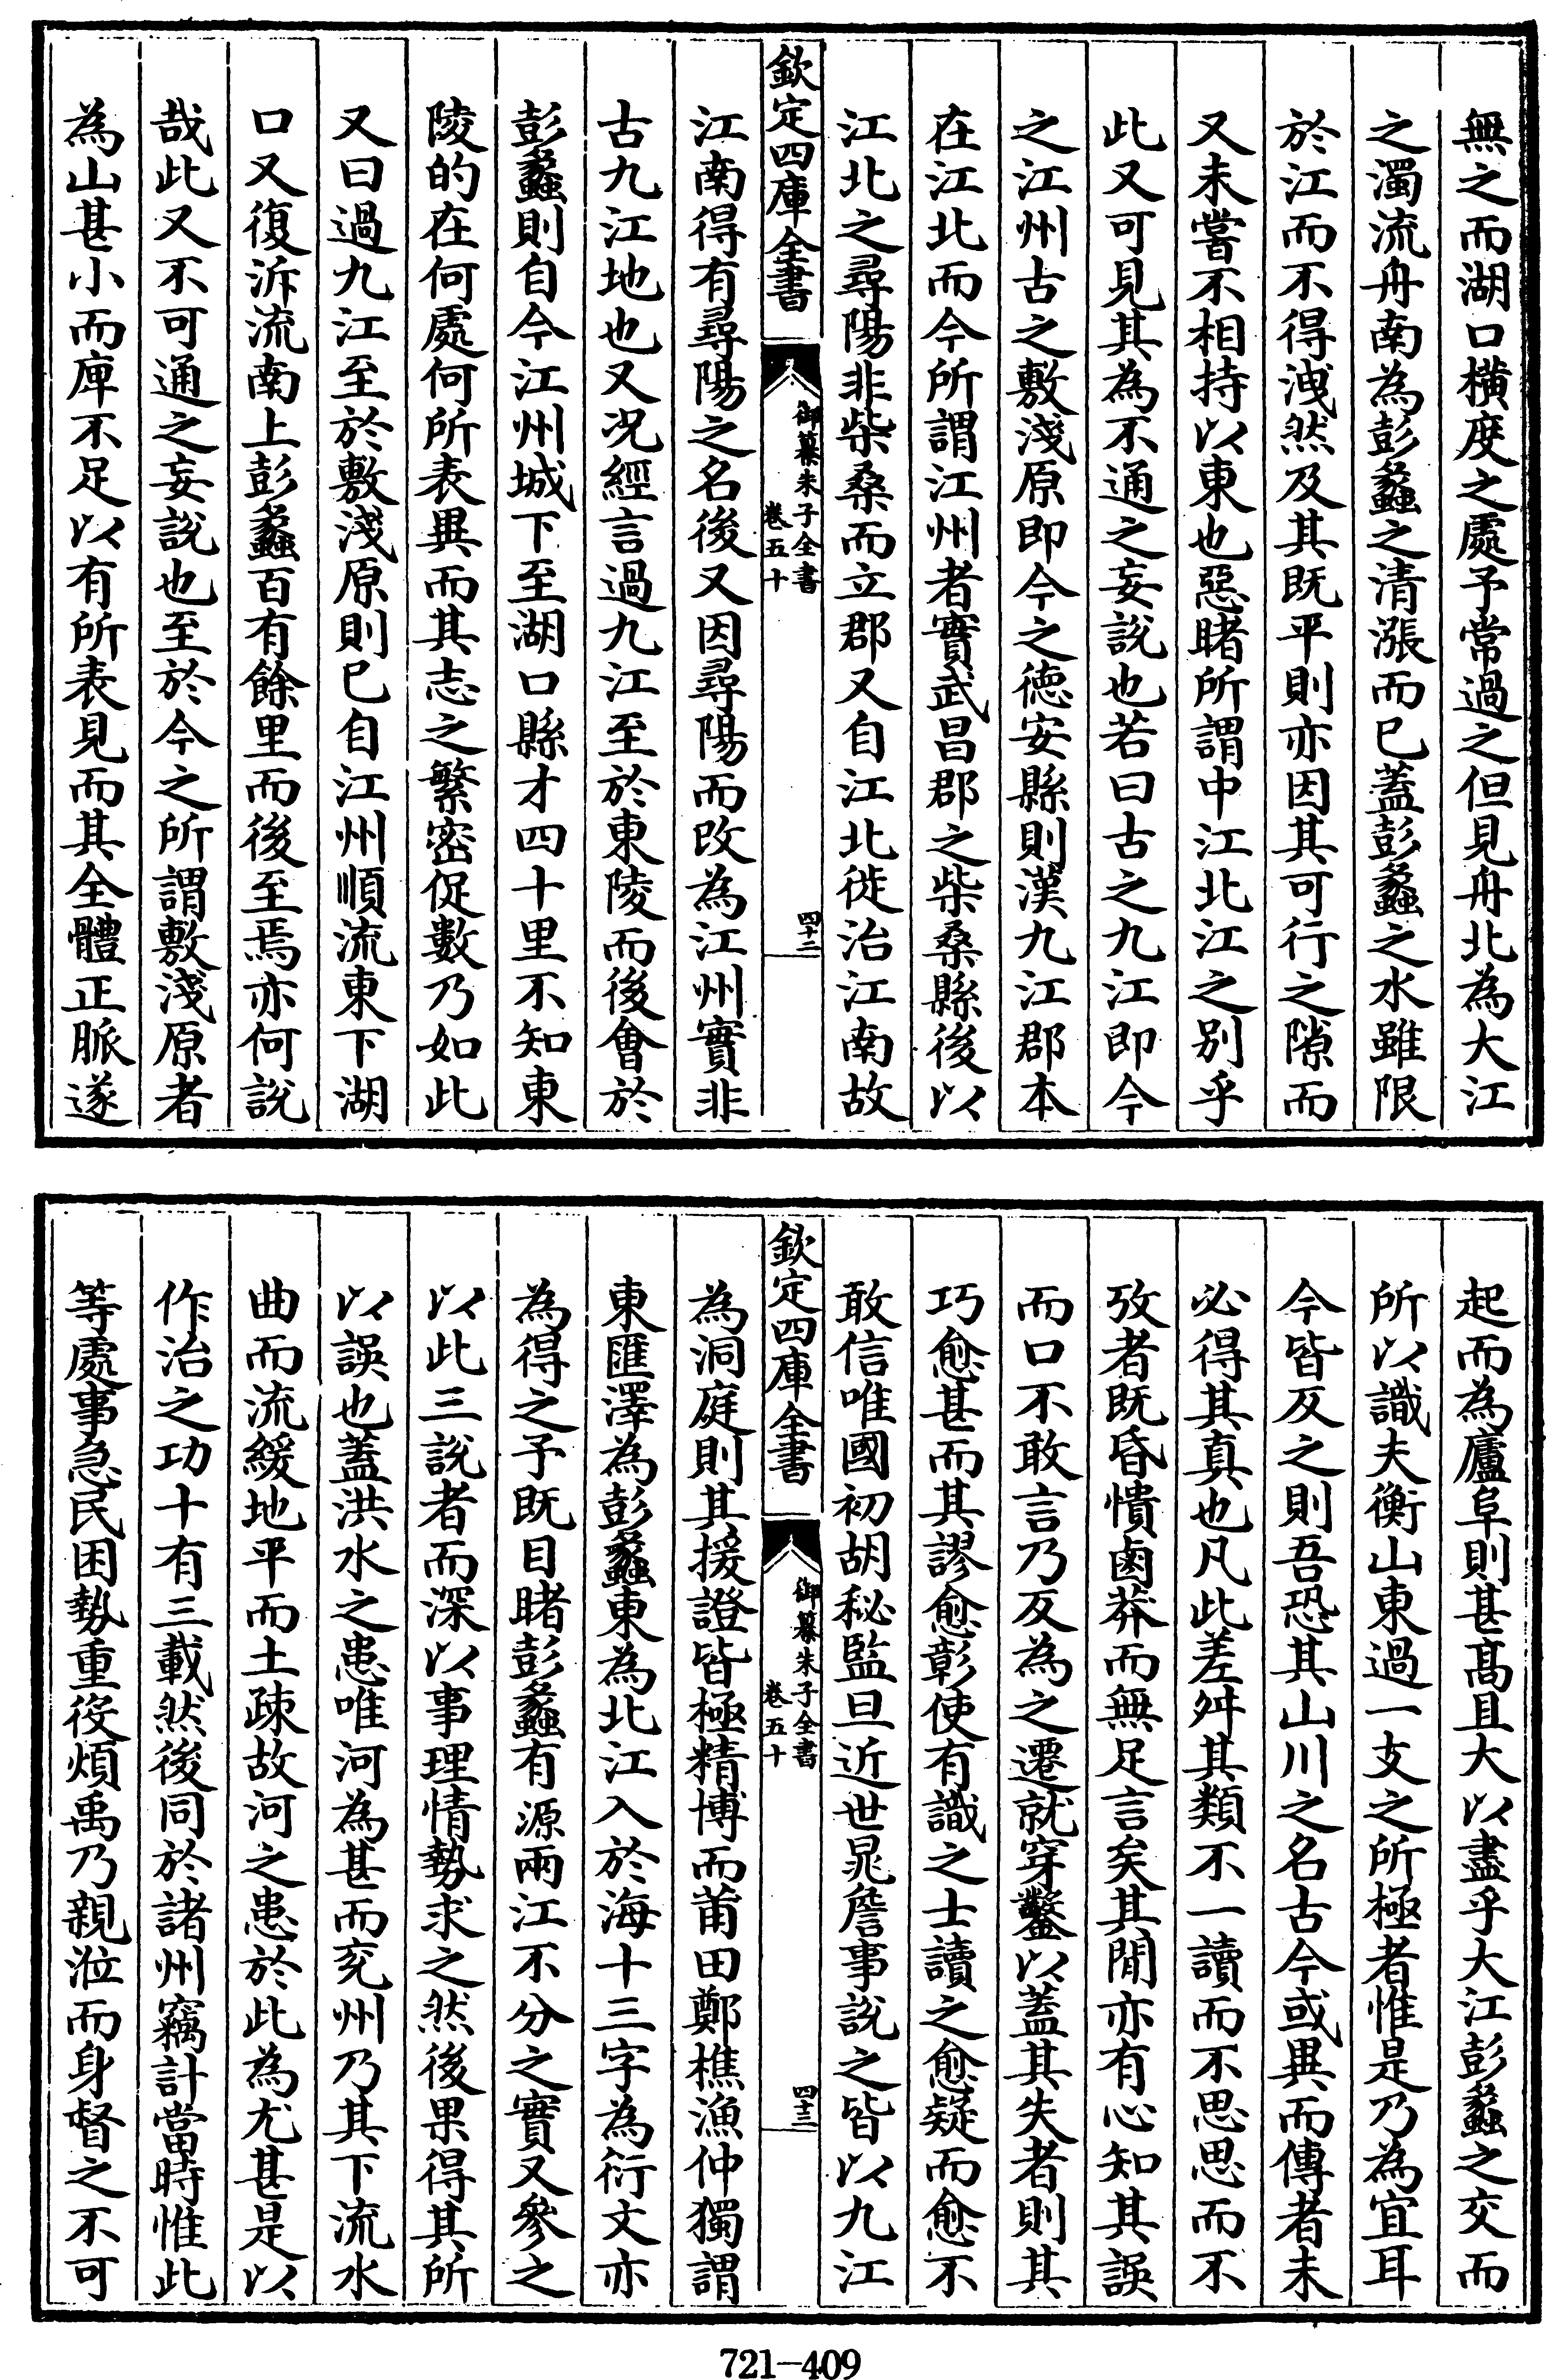 無之而湖口橫度之處予常過之但見舟北為大江
之濁流舟南為彭蠡之清漲而已蓋彭蠡之水雖限
於江而不得洩然及其既平則亦因其可行之隙而
又未嘗不相持以東也惡睹所謂中江北江之别乎
此又可見其為不通之妄說也若曰古之九江即今
之江州古之敷淺原即今之徳安縣則漢九江郡本
在江北而今所謂江州者實武昌郡之柴桑縣後以
江北之尋陽非柴桑而立郡又自江北徙治江南故
欽定四庫全書
御纂朱子全書
卷五十
四十二
江南得有尋陽之名後又因尋陽而改為江州實非
古九江地也又况經言過九江至於東陵而後會於
彭蠡則自今江州城下至湖口縣才四十里不知東
陵的在何處何所表異而其志之繁密促數乃如此
又曰過九江至於敷淺原則已自江州順流東下湖
口又復泝流南上彭蠡百有餘里而後至焉亦何説
哉此又不可通之妄說也至於今之所謂敷淺原者
為山甚小而庳不足以有所表見而其全體正脈遂
起而為廬阜則甚髙且大以盡乎大江彭蠡之交而
所以識夫衡山東過一支之所極者惟是乃為宜耳
今皆反之則吾恐其山川之名古今或異而傳者未
必得其真也凡此差舛其類不一讀而不思思而不
攷者既昏憒鹵莽而無足言矣其閒亦有心知其誤
而口不敢言乃反為之遷就穿鑿以蓋其失者則其
巧愈甚而其謬愈彰使有識之士讀之愈疑而愈不
敢信唯國初胡秘監旦近世晁詹事說之皆以九江
欽定四庫全書
御纂朱子全書
卷五十
四十三
為洞庭則其援證皆極精博而莆田鄭樵漁仲獨謂
東匯澤為彭蠡東為北江入於海十三字為衍文亦
為得之予既目睹彭蠡有源兩江不分之實又參之
以此三說者而深以事理情勢求之然後果得其所
以誤也蓋洪水之患唯河為甚而兖州乃其下流水
曲而流緩地平而土疎故河之患於此為尤甚是以
作治之功十有三載然後同於諸州竊計當時惟此
等處事急民困勢重役煩禹乃親涖而身督之不可
721-409